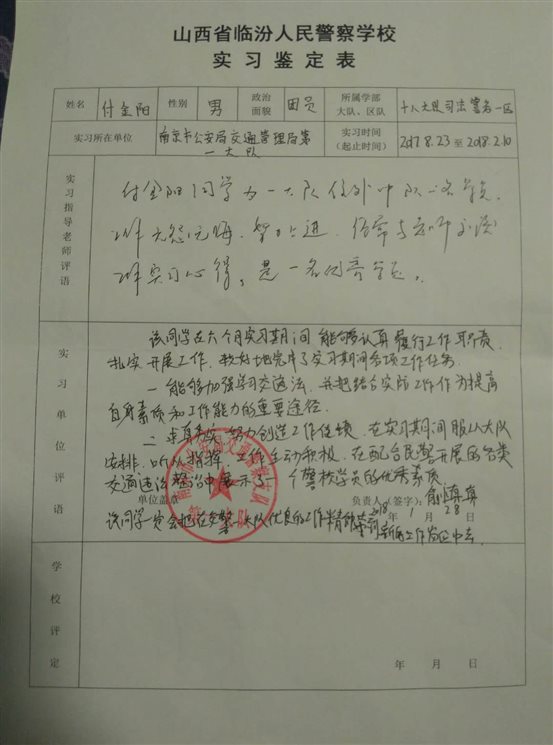 山西省临汾人民警察学校
实习鉴定表
姓名 付金阳 性别 男 政治面貌 团员 所属学部大队、区队 十八大队司法警务一区
实习所在单位 南京市公安局交通管理局第一大队 实习时间(起止时间) 2017.8.23 至 2018.2.10
实习指导老师评语
付金阳同学为一大队 中队一名学员
无怨无悔 努力上进 经常与老师交流
实习心得 是一名优秀学员
实习单位评语
该同学在六个月实习期间 能够认真履行工作职责
扎实开展工作 较好地完成了实习期间各项工作任务
一 能够加强学习交通法 并把结合实际工作作为提高
自身素质和工作能力的重要途径
二 求真务实 努力创造工作佳绩 在实习期间服从大队
安排 听从指挥 工作主动积极 在配合民警开展的各类
交通违法整治中展示了一个警校学员的优秀素质
单位盖章 负责人(签字):
2018年 1月 28日
该同学一定会把在交警一大队优良的工作精神 到新的工作岗位中去
学校评定
年 月 日